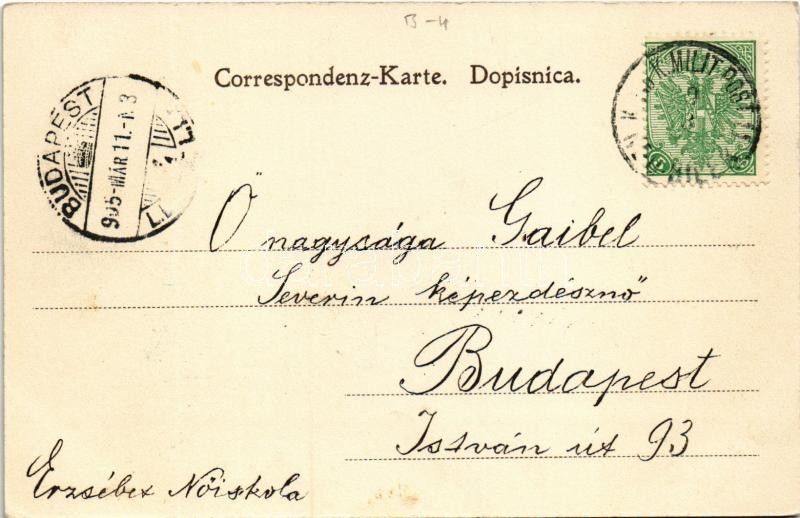 B-4
Correspondenz-Karte. Dopisnica.
BUDAPEST
905 MÁR 11.
K. UND K. MILIT. POST
5 5
Ő nagysága Gaibel
Severin képezdésznő
Budapest
István út 93
Erzsébet Nőiskola